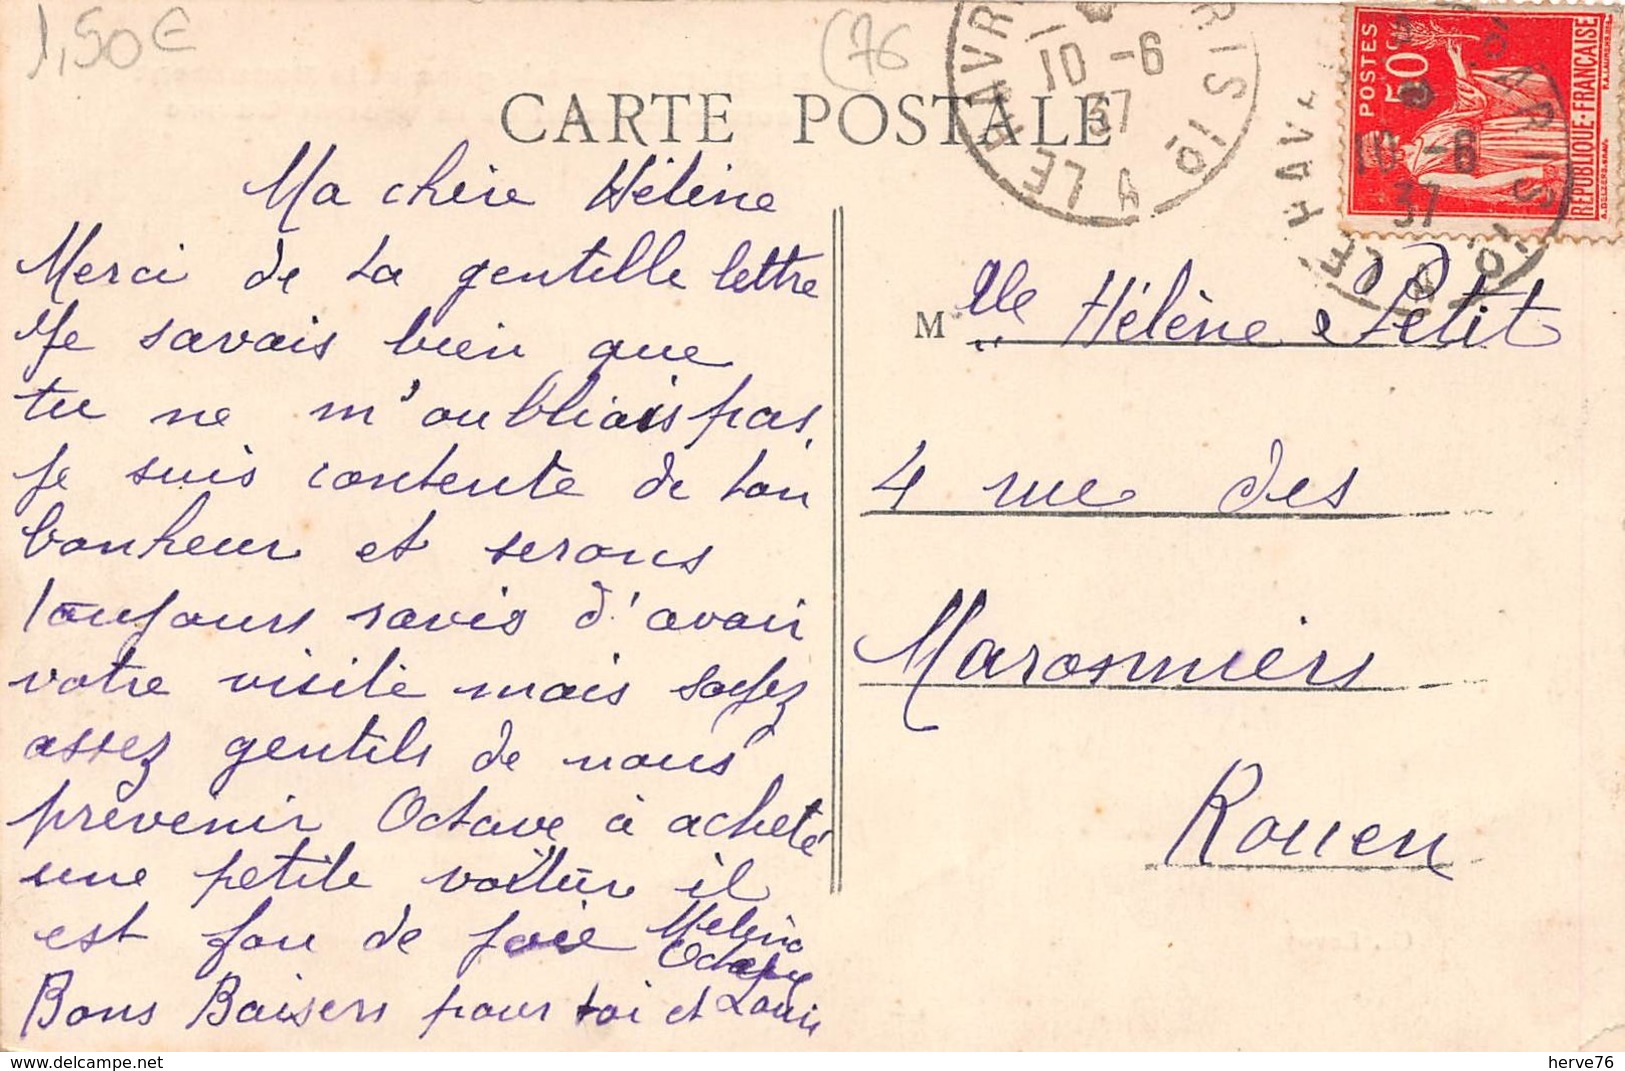 1,50€
(76
CARTE POSTALE
LE HAVRE
10-6
37
POSTES
50c
REPUBLIQUE-FRANÇAISE
10-6
37
Ma chère Hélène
Merci de ta gentille lettre
Je savais bien que
tu ne m'oubliais pas.
Je suis contente de ton
bonheur et serons
toujours ravis d'avoir
votre visite mais soyez
assez gentils de nous
prévenir Octave à acheté
une petite voiture il
est fou de joie
Octave
Bons Baisers pour toi et Louis
Mlle Hélène Petit
4 rue des
Maronniers
Rouen
https://www.delcampe.net
herve76